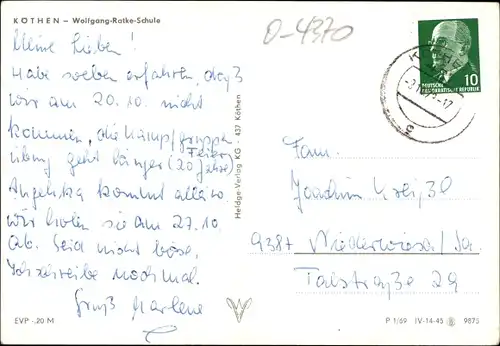 KÖTHEN – Wolfgang-Ratke-Schule
0-4370
Meine Lieben!
Habe soeben erfahren, daß
wir am 20.10. nicht
kommen, die Kampfgruppen
übung geht länger (20 Jahre)
Feier
Angelika kommt alleine
wir holen sie am 27.10.
ab. Seid nicht böse,
Ich schreibe nochmal.
Gruß Marlene
EVP -,20 M
Heldge-Verlag KG · 437 Köthen
DEUTSCHE
DEMOKRATISCHE REPUBLIK
10
Fam.
Joachim
9387 Niederwiesa/Sa.
Talstraße 29
P 1/69 IV-14-45 9875